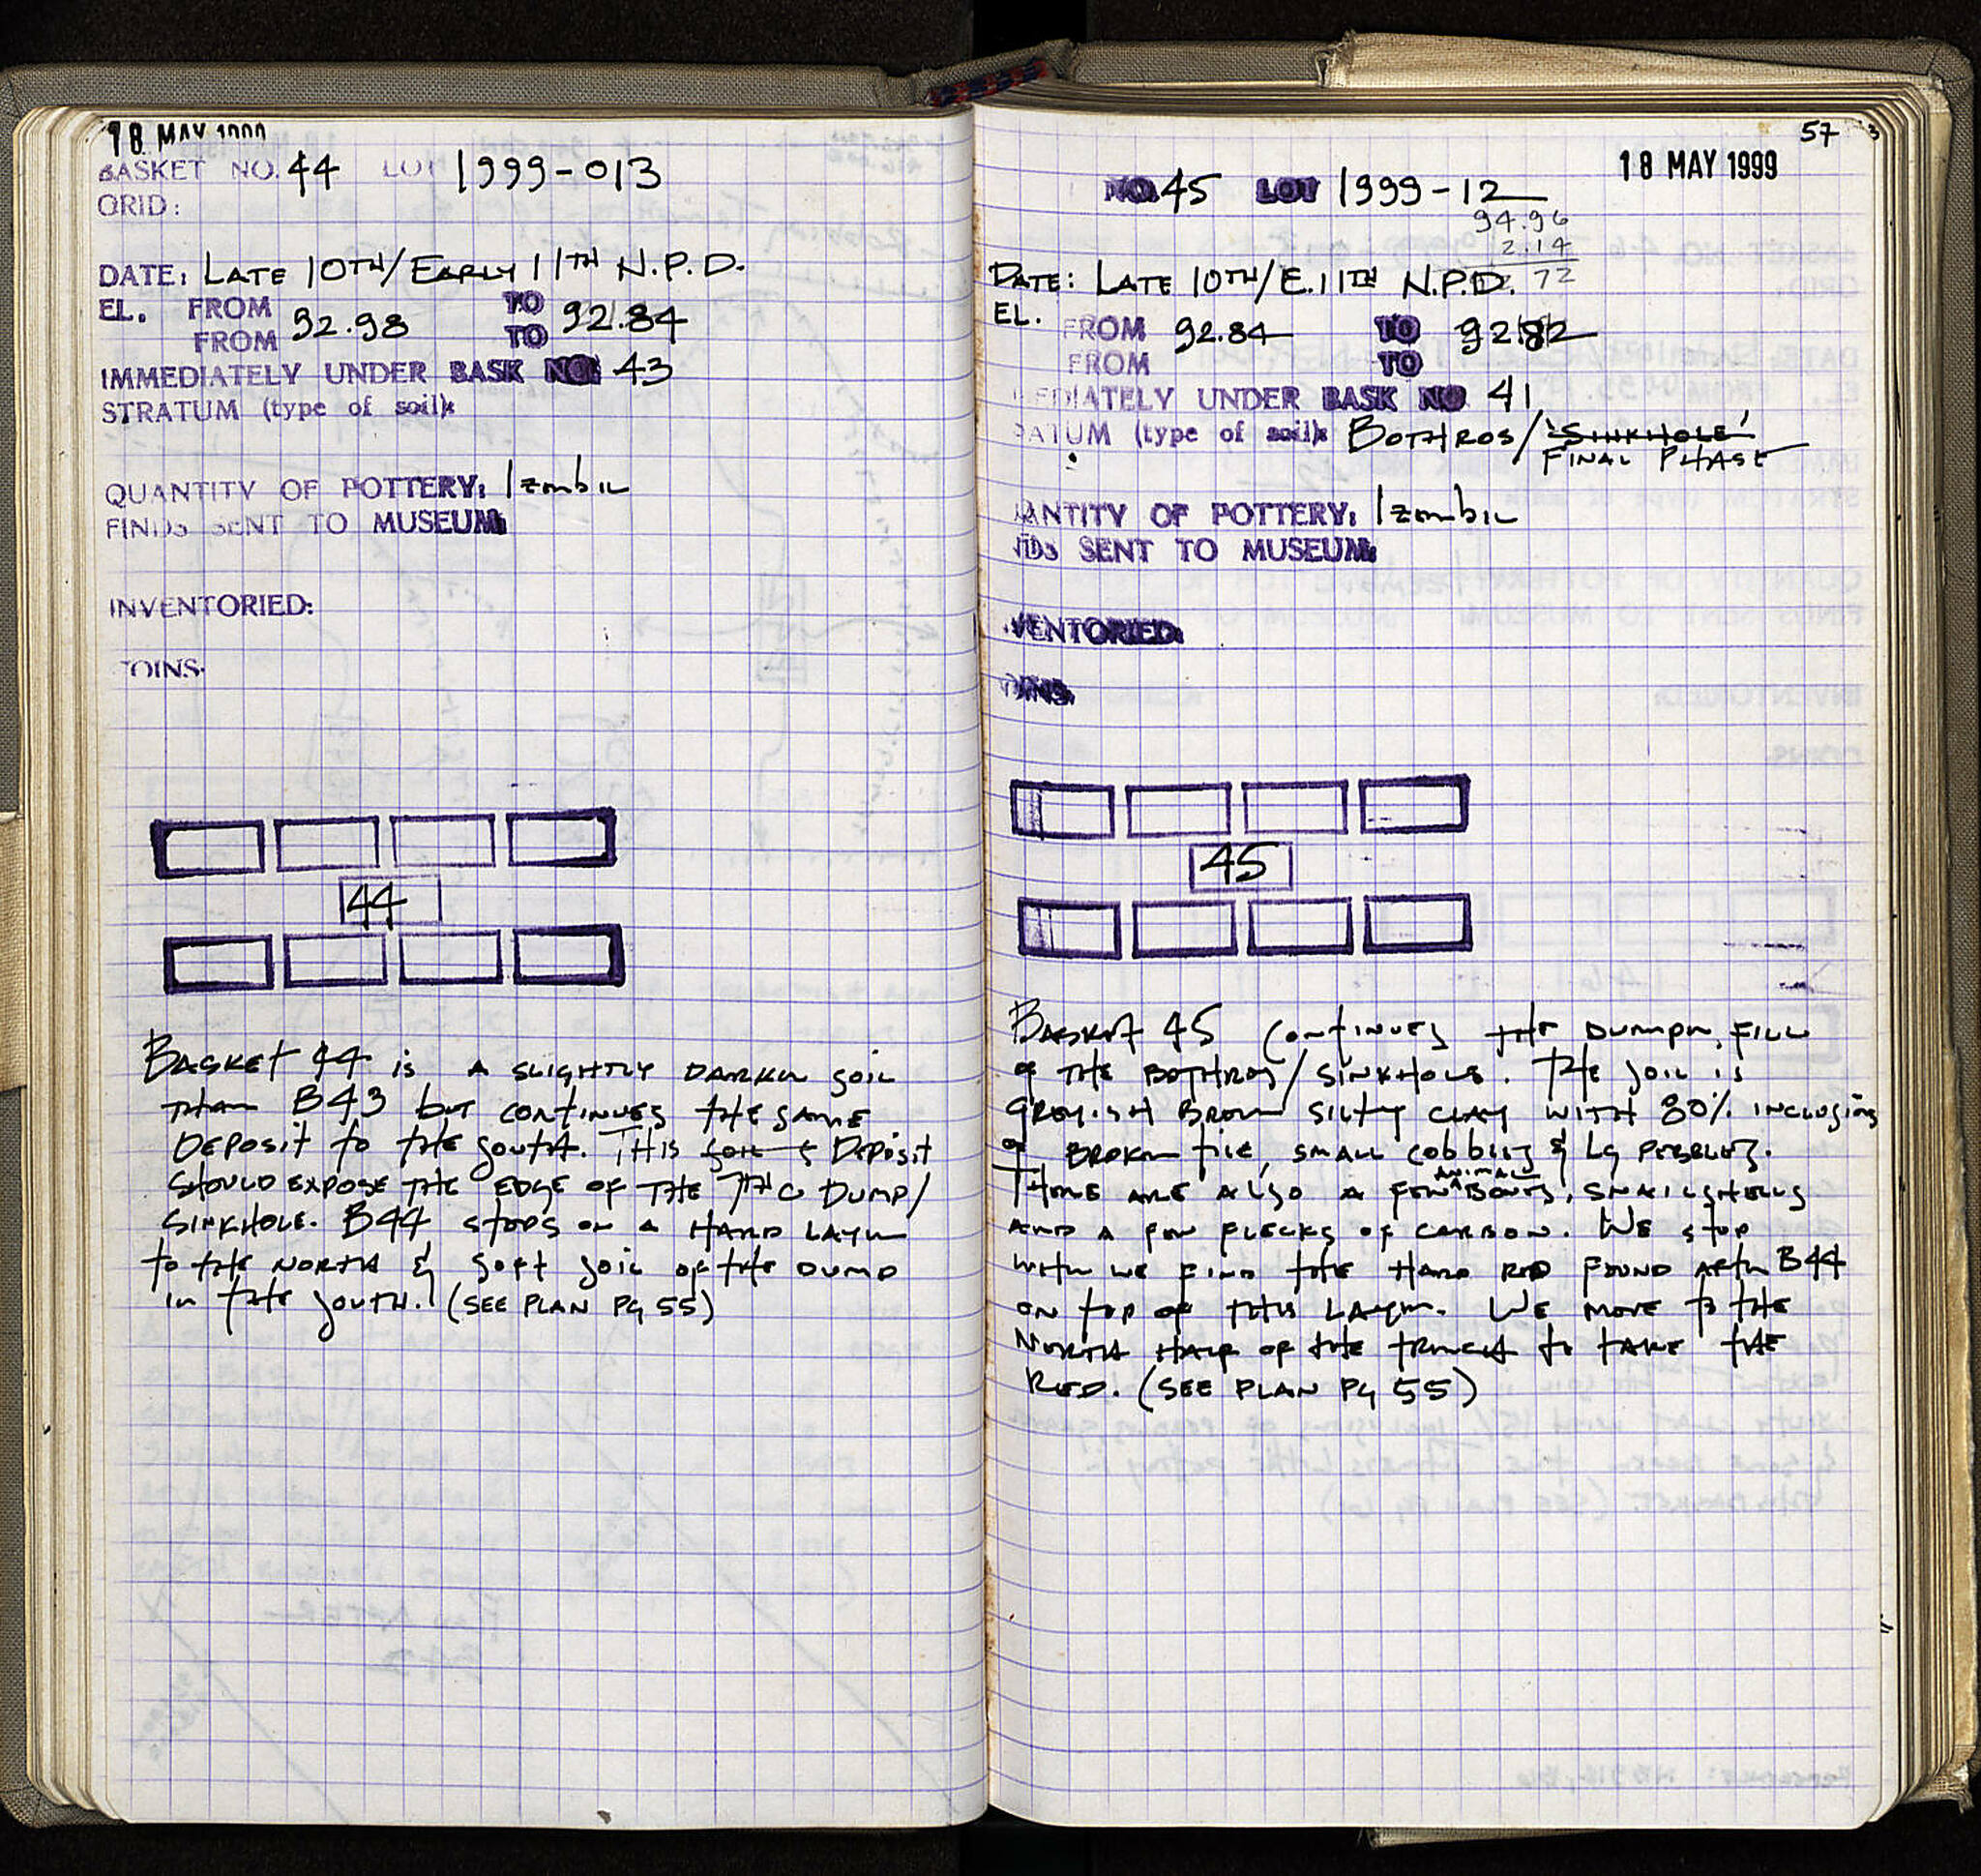 18 MAY 1999
BASKET NO. 44 LOT 1999-013
GRID:
DATE: LATE 10TH/EARLY 11TH N.P.D.
EL. FROM 92.98 TO 92.84
FROM TO
IMMEDIATELY UNDER BASK NO. 43
STRATUM (type of soil):
QUANTITY OF POTTERY: 1zembil
FINDS SENT TO MUSEUM:
INVENTORIED:
COINS:
44
BASKET 44 is A SLIGHTLY DARKER SOIL
THAN B43 but CONTINUES THE SAME
DEPOSIT to THE SOUTH. THIS DEPOSIT
SHOULD EXPOSE THE EDGE OF THE DUMP/
SINKHOLE. B44 STOPS ON A HARD LAYER
TO THE NORTH & SOFT SOIL OF THE DUMP
IN THE SOUTH. (SEE PLAN PG 55)
57
18 MAY 1999
NO. 45 LOT 1999-12
94.96
2.14
72
DATE: LATE 10TH/E.11TH N.P.D.
EL. FROM 92.84 TO 92.82
FROM TO
MEDIATELY UNDER BASK NO 41
RATUM (type of soil): BOTHROS/'SINKHOLE'
FINAL PHASE
ANTITY OF POTTERY: 1zembil
NDS SENT TO MUSEUM:
VENTORIED:
OINS:
45
BASKET 45 CONTINUES THE DUMPED FILL
of THE BOTHROS/SINKHOLE. THE SOIL IS
GREYISH BROWN SILTY CLAY WITH 80% INCLUSIONS
of BROKEN TILE, SMALL COBBLES & LG PEBBLES.
THERE ARE ALSO A FEW ANIMAL BONES, SNAILSHELLS
AND A FEW FLECKS OF CARBON. WE STOP
WHEN WE FIND THE HARD RED FOUND AFTER B44
ON TOP OF THIS LAYER. WE MOVE TO THE
NORTH HALF OF THE TRENCH TO TAKE THE
RED. (SEE PLAN PG 55)